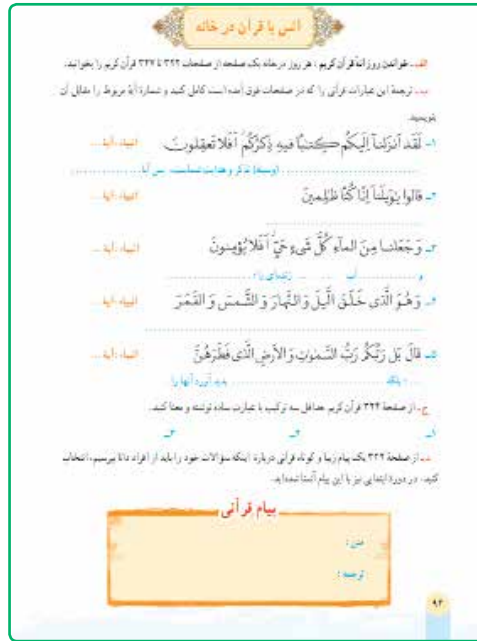 انس با قرآن در خانه
الف ـ خواندن روزانهٔ قرآن کریم: هر روز در خانه یک صفحه از صفحات ۳۲۲ تا ۳۲۷ قرآن کریم را بخوانید.
ب ـ ترجمهٔ این عبارات قرآنی را که در صفحات فوق آمده است کامل کنید و شمارهٔ آیهٔ مربوط را مقابل آن
بنویسید.
۱ـ لَقَد اَنزَلنآ اِلَیکُم کِتٰبًا فیهِ ذِکرُکُم اَفَلا تَعقِلونَ انبیاء، آیهٔ ...
(وسیلهٔ) تذکر و هدایت شماست، پس آیا
۲ـ قالوا یٰوَیلَنآ اِنّا کُنّا ظٰلِمینَ انبیاء، آیهٔ ...
۳ـ وَ جَعَلنا مِنَ المآءِ کُلَّ شَیءٍ حَیٍّ اَفَلا یُؤمِنونَ انبیاء، آیهٔ ...
و ........ آب ........ زنده‌ای را؛
۴ـ وَ هُوَ الَّذی خَلَقَ الَّیلَ وَ النَّهارَ وَ الشَّمسَ وَ القَمَرَ انبیاء، آیهٔ ...
۵ـ قالَ بَل رَبُّکُم رَبُّ السَّمٰوٰتِ وَ الاَرضِ الَّذی فَطَرَهُنَّ انبیاء، آیهٔ ...
... بلکه ........ پدید آورد آنها را
ج ـ از صفحهٔ ۳۲۴ قرآن کریم حداقل سه ترکیب یا عبارت ساده نوشته و معنا کنید.
۱ـ ۲ـ ۳ـ
د ـ از صفحهٔ ۳۲۲ یک پیام زیبا و کوتاه قرآنی دربارهٔ اینکه سؤالات خود را باید از افراد دانا بپرسیم، انتخاب
کنید. در دورهٔ ابتدایی نیز با این پیام آشنا شده‌اید.
پیام قرآنی
متن:
ترجمه:
۹۲